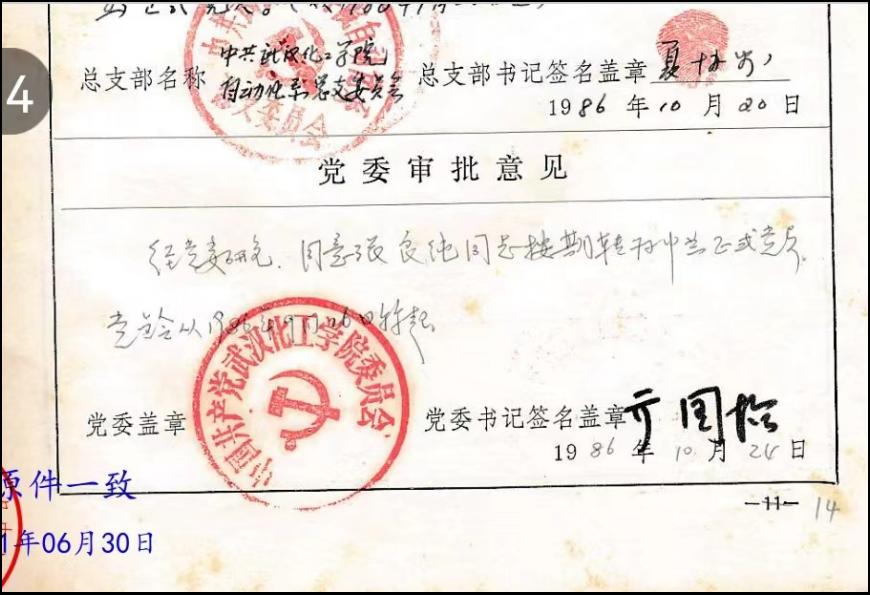 4
中共武汉化工学院
总支部名称 自动化系总支委员会 总支部书记签名盖章
1986 年 10 月 20 日
党委审批意见
经党委研究，同意张良纯同志按期转为中共正式党员。
党龄从1986年9月26日算起。
中国共产党武汉化工学院委员会
党委盖章 党委书记签名盖章
1986 年 10 月 24 日
原件一致
1年06月30日
-11- 14